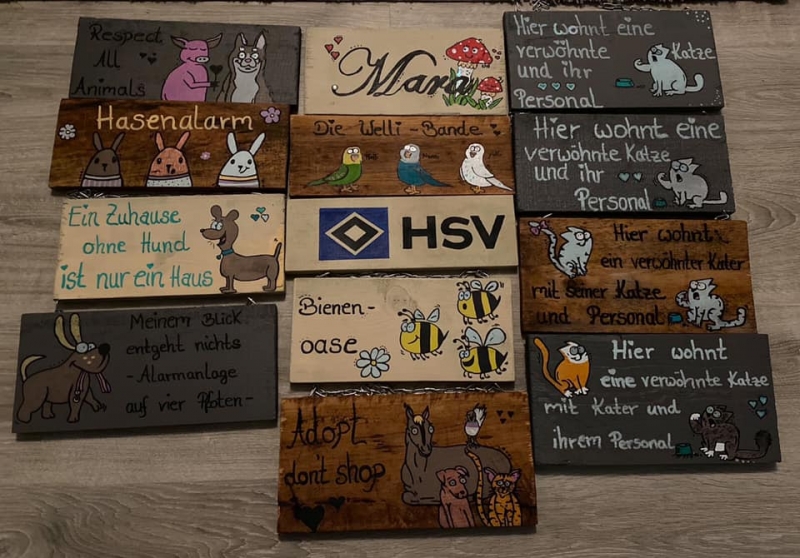 Respect
All
Animals
Hasenalarm
Ein Zuhause
ohne Hund
ist nur ein Haus
Meinem Blick
entgeht nichts
- Alarmanlage
auf vier Pfoten -
Mara
Die Welli - Bande
HSV
Bienen-
oase
Adopt
don't shop
Hier wohnt eine
verwöhnte Katze
und ihr
Personal
Hier wohnt eine
verwöhnte Katze
und ihr
Personal
Hier wohnt
ein verwöhnter Kater
mit seiner Katze
und Personal
Hier wohnt
eine verwöhnte Katze
mit Kater und
ihrem Personal